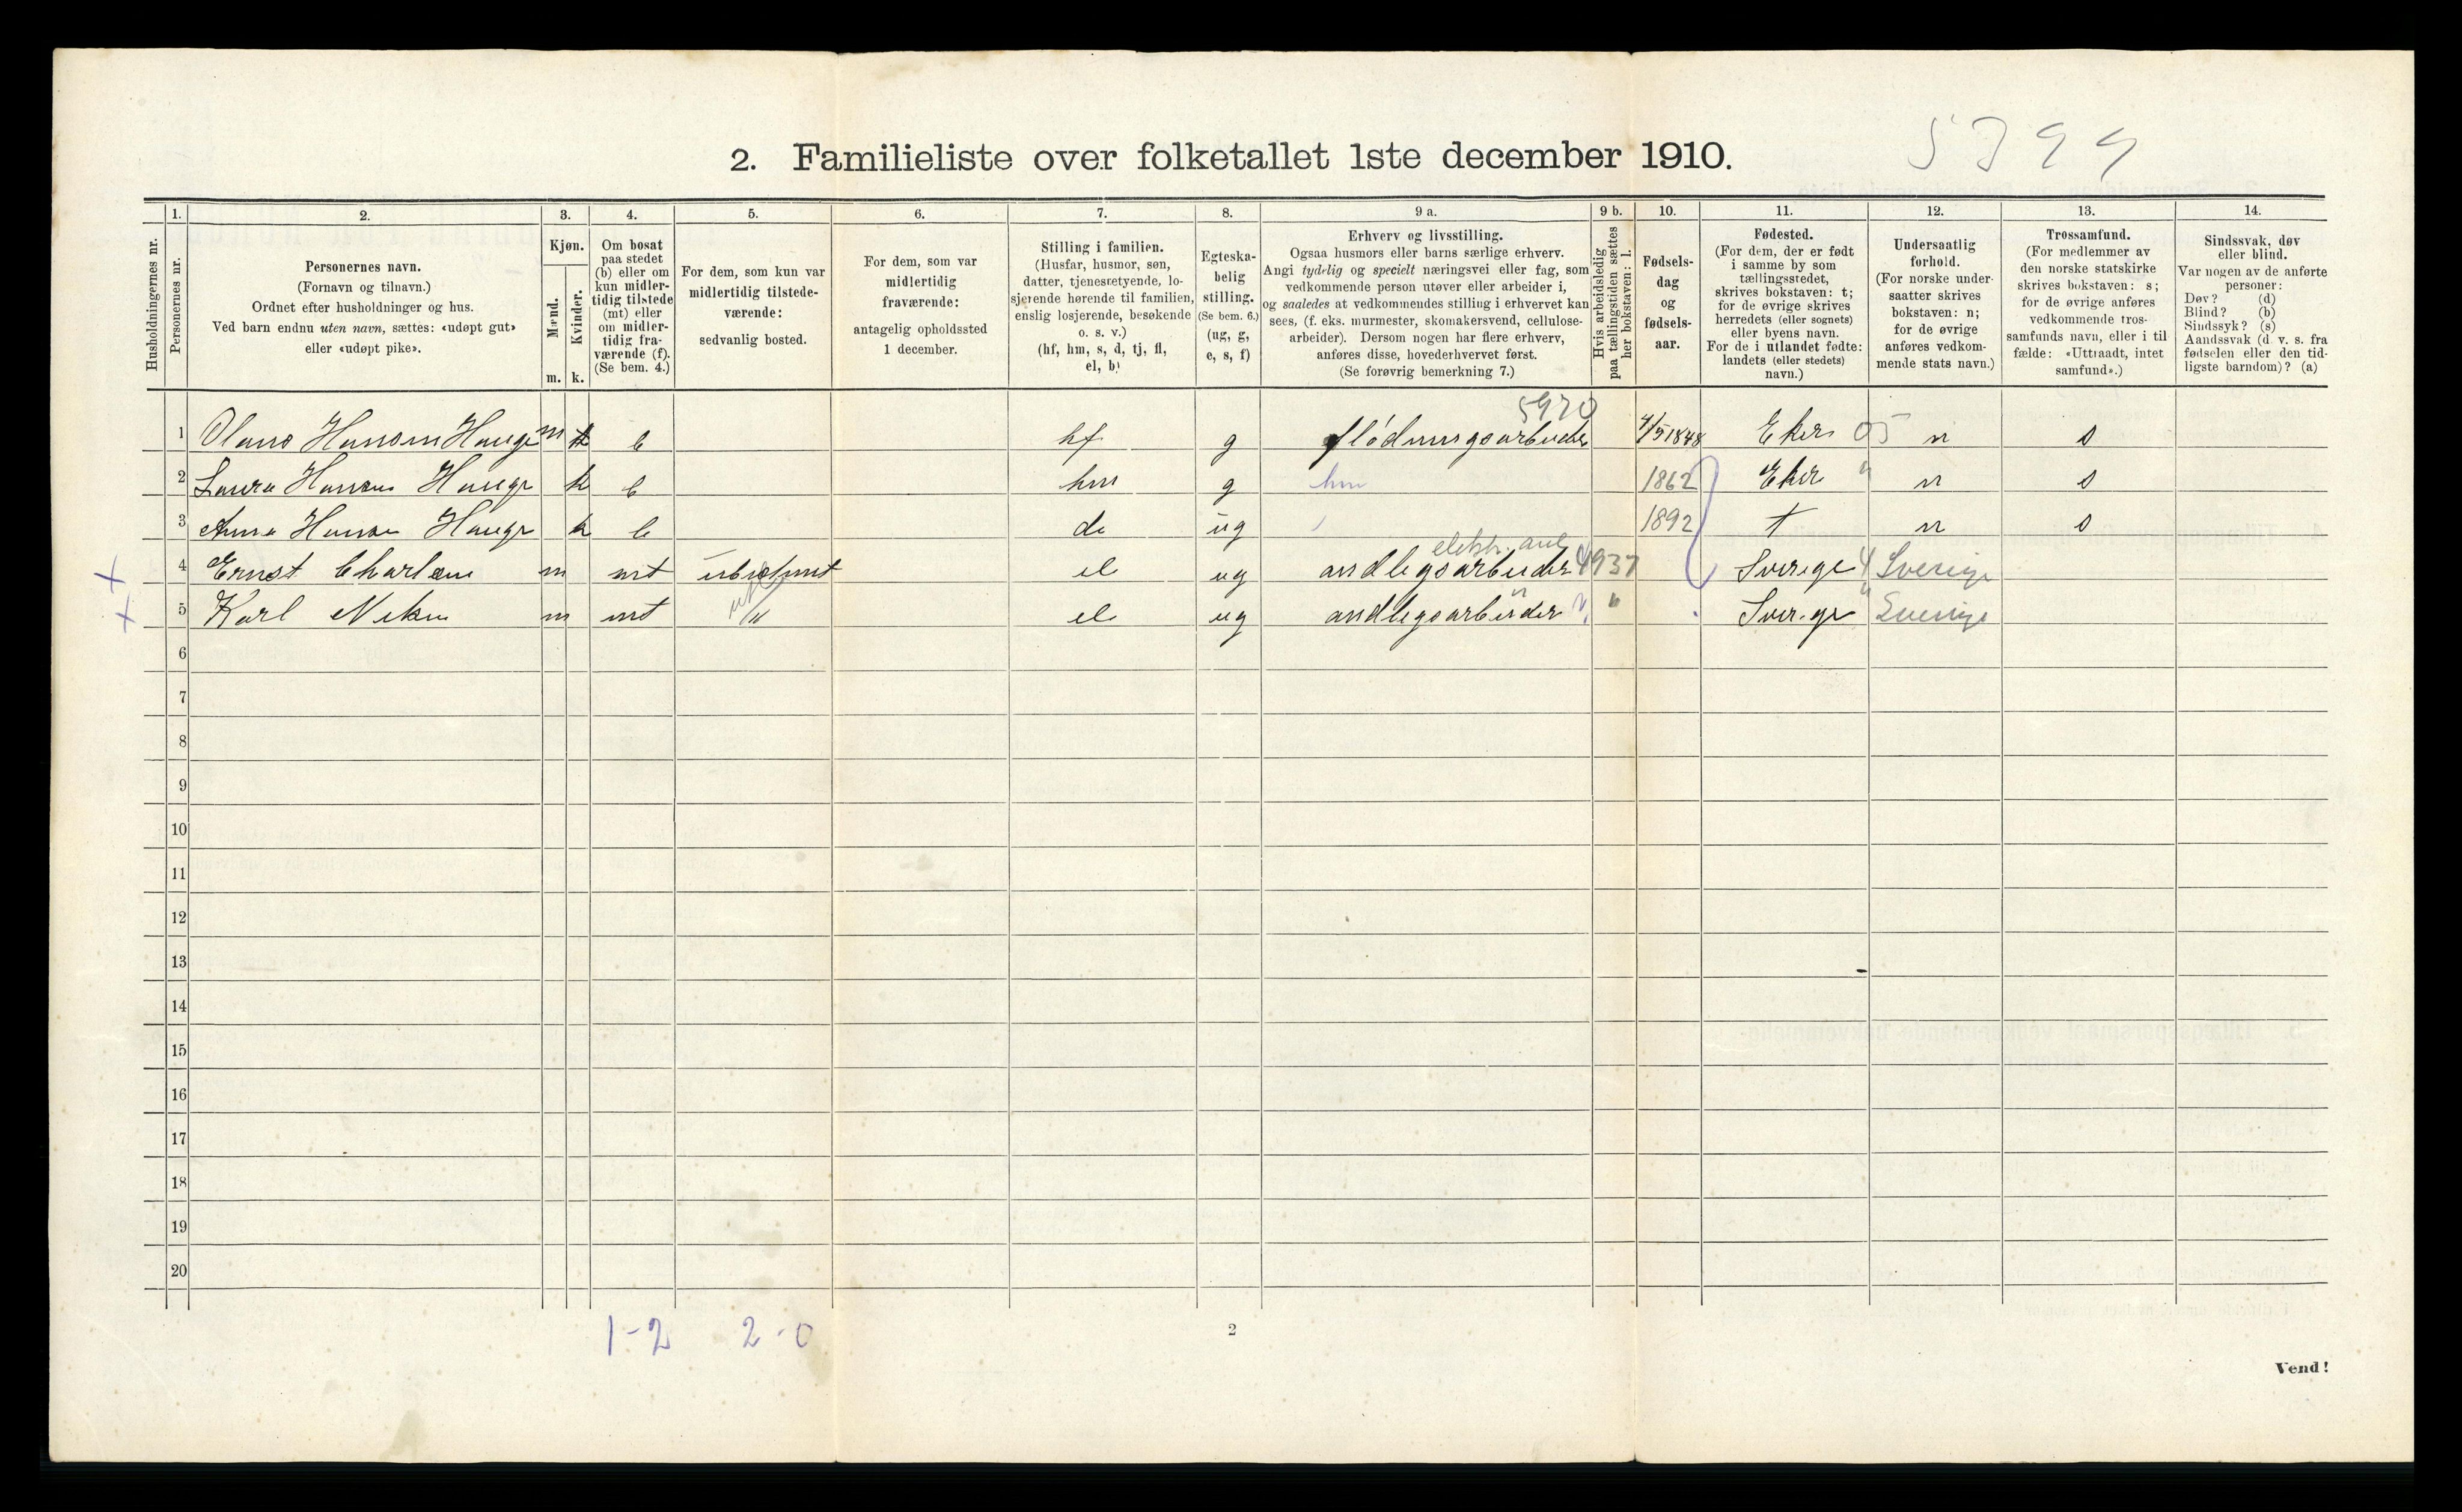 5399
2. Familieliste over folketallet 1ste december 1910.
Husholdningernes nr.
1. Personernes nr.
2. Personernes navn.
(Fornavn og tilnavn.)
Ordnet efter husholdninger og hus.
Ved barn endnu uten navn, sættes: «udøpt gut»
eller «udøpt pike».
3. Kjøn.
Mænd. m.
Kvinder. k.
4. Om bosat
paa stedet
(b) eller om
kun midler-
tidig tilstede
(mt) eller
om midler-
tidig fra-
værende (f).
(Se bem. 4.)
5. For dem, som kun var
midlertidig tilstede-
værende:
sedvanlig bosted.
6. For dem, som var
midlertidig
fraværende:
antagelig opholdssted
1 december.
7. Stilling i familien.
(Husfar, husmor, søn,
datter, tjenestetyende, lo-
sjerende hørende til familien,
enslig losjerende, besøkende
o. s. v.)
(hf, hm, s, d, tj, fl,
el, b)
8. Egteska-
belig
stilling.
(Se bem. 6.)
(ug, g,
e, s, f)
9 a. Erhverv og livsstilling.
Ogsaa husmors eller barns særlige erhverv.
Angi tydelig og specielt næringsvei eller fag, som
vedkommende person utøver eller arbeider i,
og saaledes at vedkommendes stilling i erhvervet kan
sees, (f. eks. murmester, skomakersvend, cellulose-
arbeider). Dersom nogen har flere erhverv,
anføres disse, hovederhvervet først.
(Se forøvrig bemerkning 7.)
9 b. Hvis arbeidsledig
paa tællingstiden sættes
her bokstaven: l.
10. Fødsels-
dag
og
fødsels-
aar.
11. Fødested.
(For dem, der er født
i samme by som
tællingsstedet,
skrives bokstaven: t;
for de øvrige skrives
herredets (eller sognets)
eller byens navn.
For de i utlandet fødte:
landets (eller stedets)
navn.)
12. Undersaatlig
forhold.
(For norske under-
saatter skrives
bokstaven: n;
for de øvrige
anføres vedkom-
mende stats navn.)
13. Trossamfund.
(For medlemmer av
den norske statskirke
skrives bokstaven: s;
for de øvrige anføres
vedkommende tros-
samfunds navn, eller i til-
fælde: «Uttraadt, intet
samfund».)
14. Sindssvak, døv
eller blind.
Var nogen av de anførte
personer:
Døv? (d)
Blind? (b)
Sindssyk? (s)
Aandssvak (d. v. s. fra
fødselen eller den tid-
ligste barndom)? (a)
5920
1 Hansen Hauge m b hf g flødningsarbeider 4/5 1848 Eker 05 n s
2 Laura Hansen Hauge k b hm g hm 1862 Eker " n s
3 Anna Hansen Hauge k b de ug 1892 t n s
elektr. anl
4 Ernst Charlsen m mt ubestemt el ug andlegsarbeider 4937 Sverige 4 Sverige
5 Karl m mt " el ug andlegsarbeider " Sverige " Sverige
6
7
8
9
10
11
12
13
14
15
16
17
18
19
20
1-2 2-0
2
Vend!